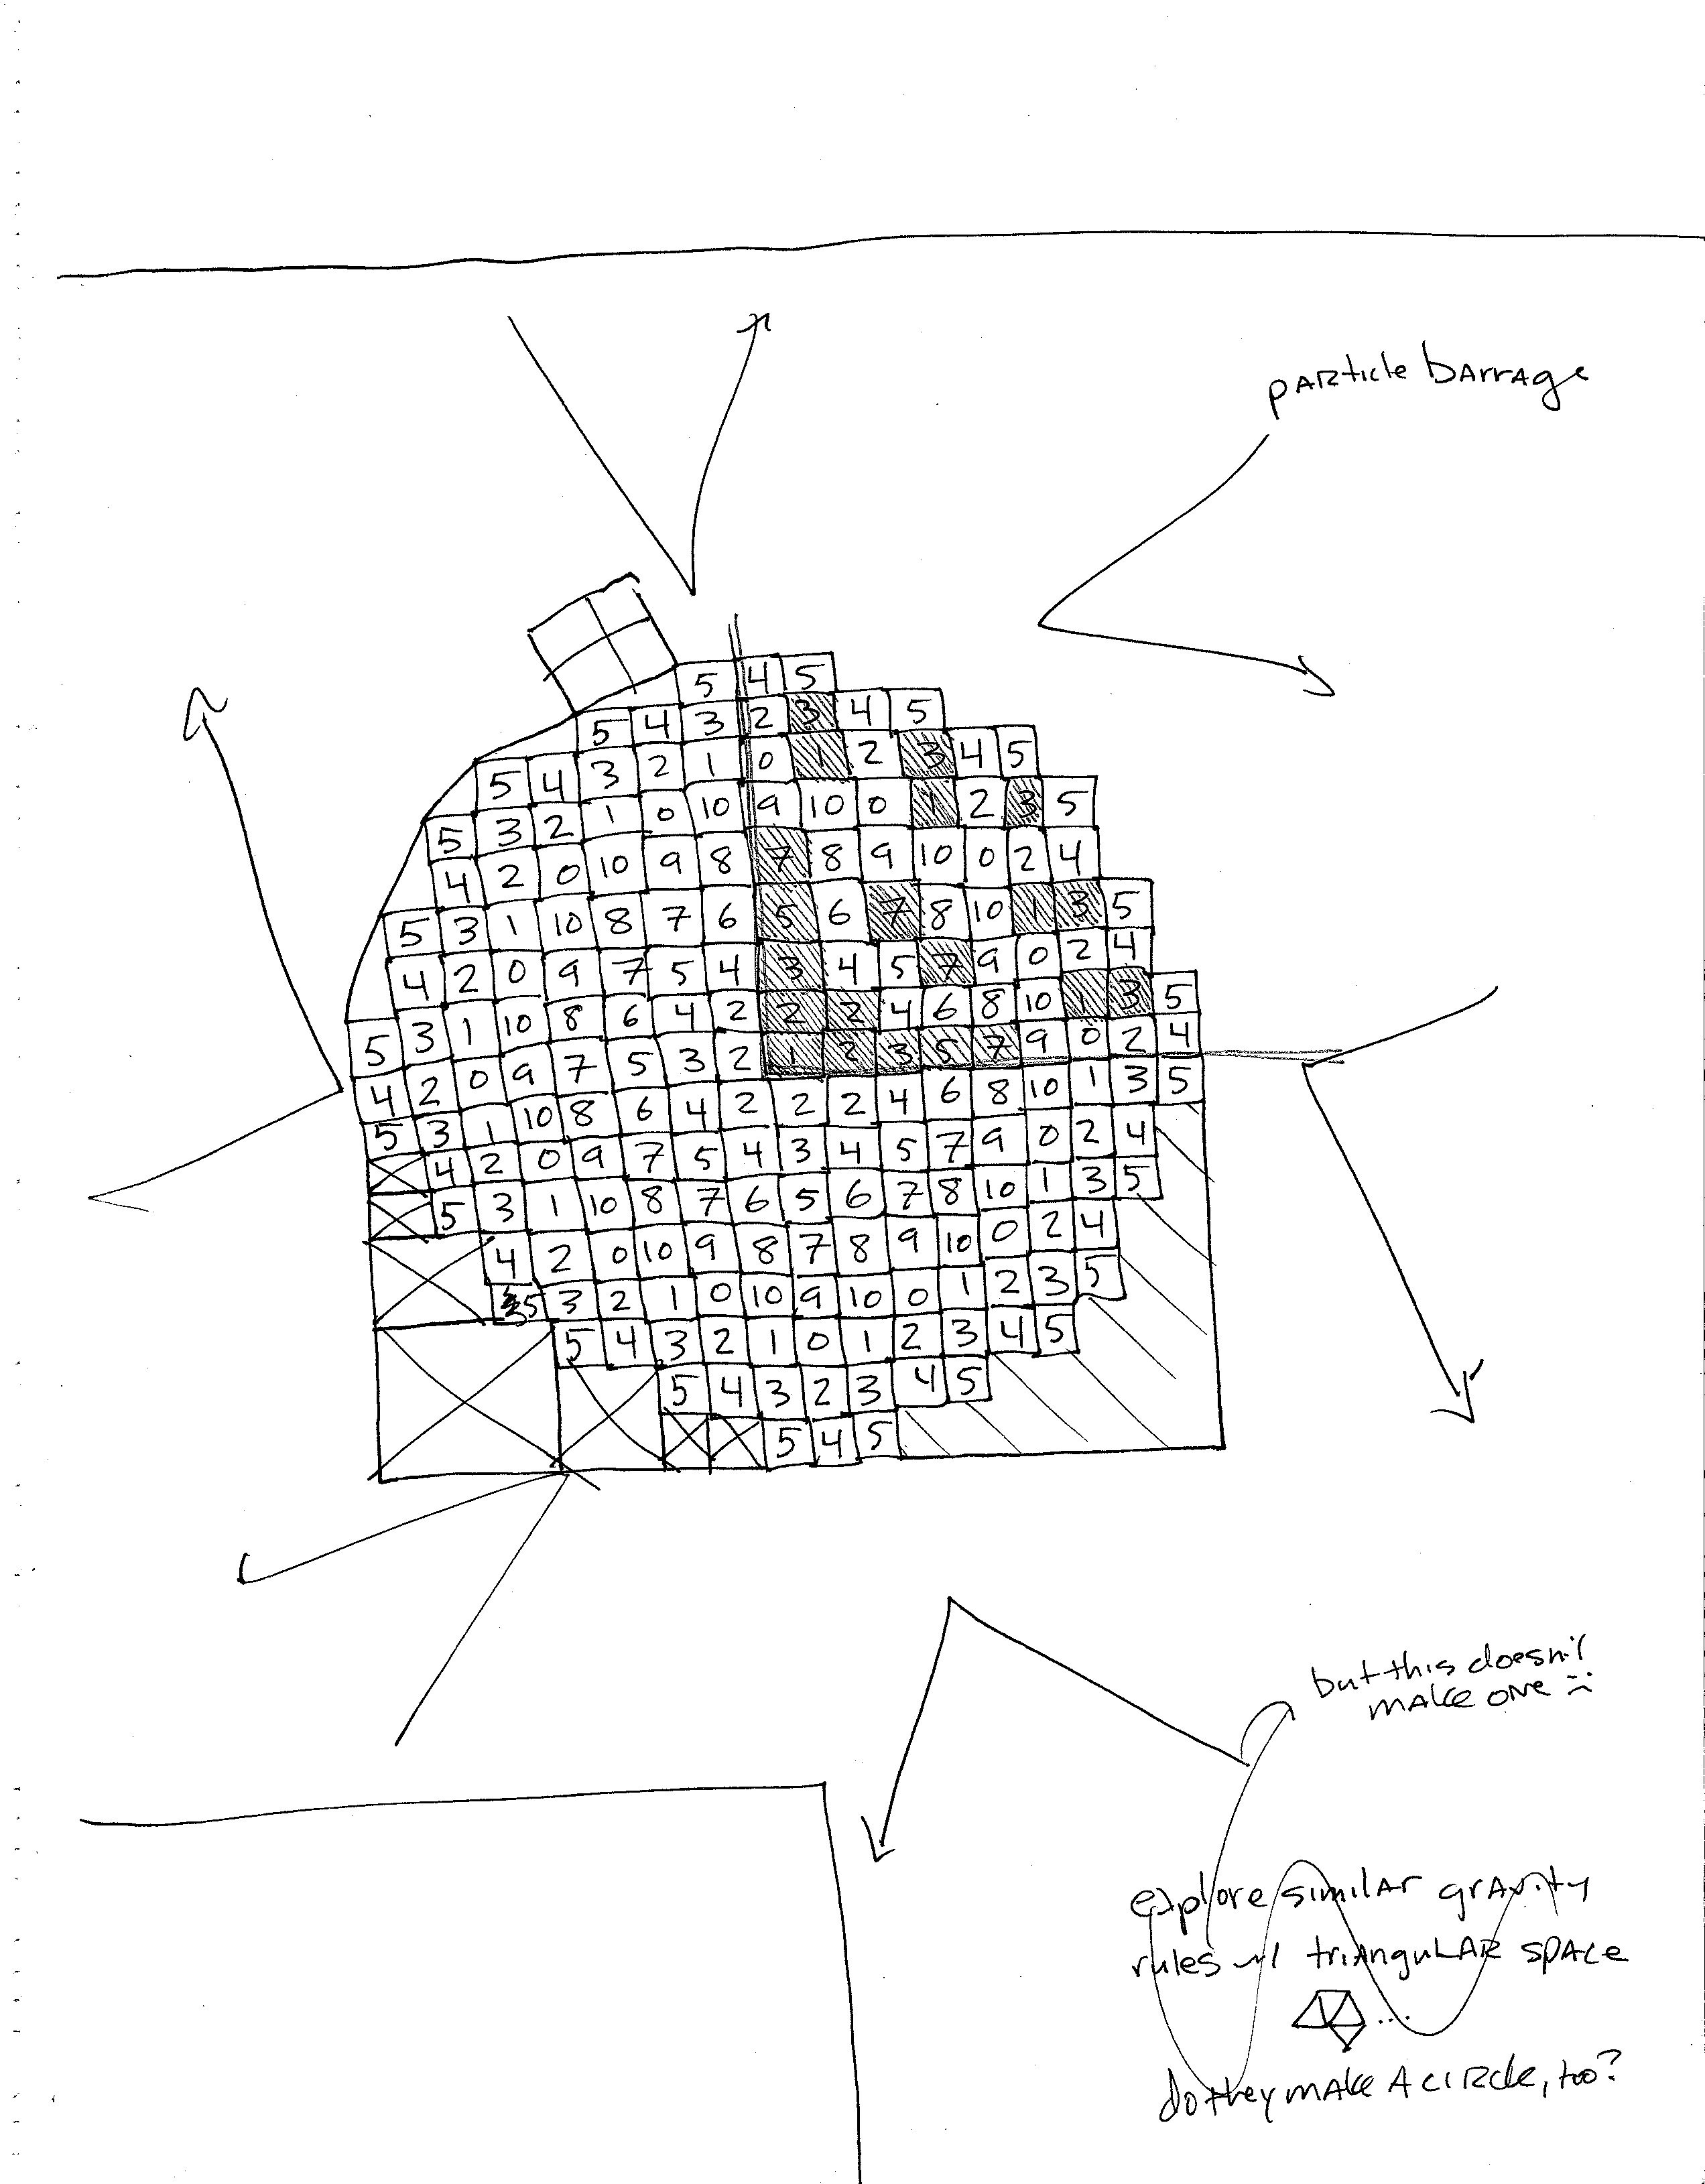 particle barrage
5 4 5
5 4 3 2 3 4 5
5 4 3 2 1 0 1 2 3 4 5
5 3 2 1 0 10 9 10 0 1 2 3 5
4 2 0 10 9 8 7 8 9 10 0 2 4
5 3 1 10 8 7 6 5 6 7 8 10 1 3 5
4 2 0 9 7 5 4 3 4 5 7 9 0 2 4
5 3 1 10 8 6 4 2 2 2 4 6 8 10 1 3 5
4 2 0 9 7 5 3 2 1 2 3 5 7 9 0 2 4
5 3 1 10 8 6 4 2 2 2 4 6 8 10 1 3 5
4 2 0 9 7 5 4 3 4 5 7 9 0 2 4
5 3 1 10 8 7 6 5 6 7 8 10 1 3 5
4 2 0 10 9 8 7 8 9 10 0 2 4
5 3 2 1 0 10 9 10 0 1 2 3 5
5 4 3 2 1 0 1 2 3 4 5
5 4 3 2 3 4 5
5 4 5
but this doesn't
make one :(
explore similar gravity
rules w/ triangular space
...
do they make a circle, too?